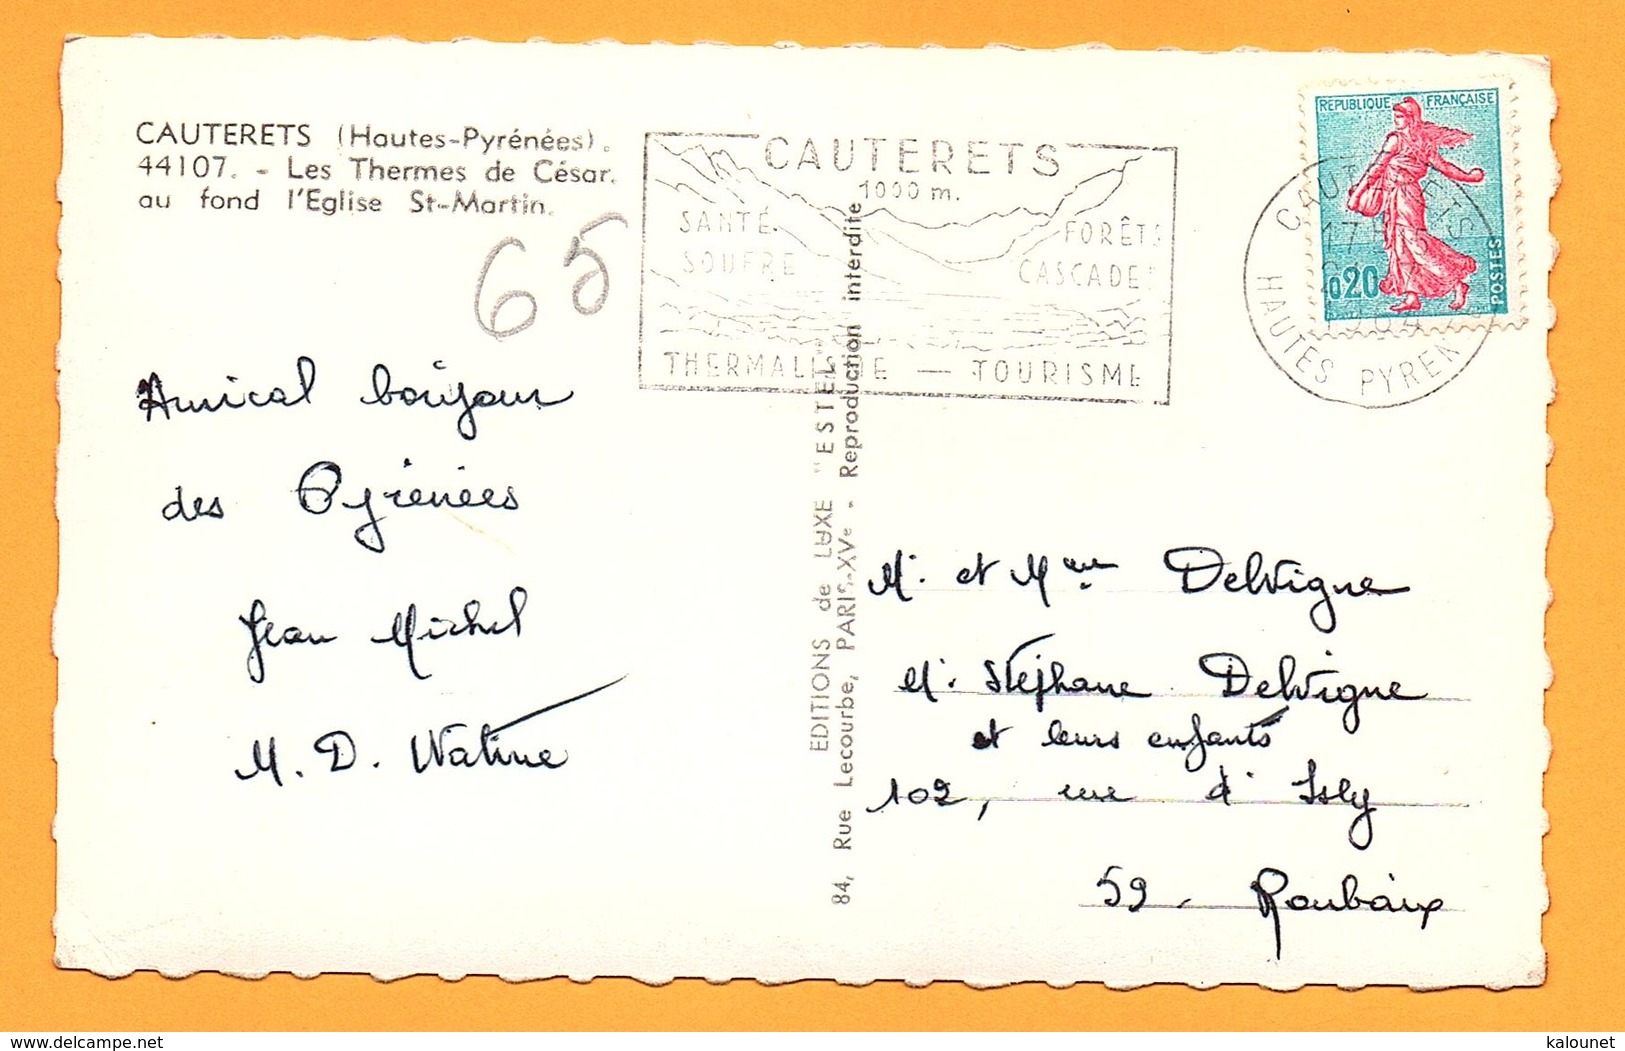 CAUTERETS (Hautes-Pyrénées).
44107. - Les Thermes de César.
au fond l'Eglise St-Martin.
65
CAUTERETS
1000 m.
SANTÉ
SOUFRE
FORÊTS
CASCADES
THERMALISME — TOURISME
REPUBLIQUE FRANÇAISE
0,20
POSTES
CAUTERETS
17H
1964
HAUTES PYRENEES
Amical bonjour
des Pyrénées
Jean Michel
M. D. Watine
EDITIONS de LUXE "ESTEL"
84, Rue Lecourbe, PARIS-XVe - Reproduction interdite
M. et Mme Delvigne
M. Stéphane Delvigne
et leurs enfants
102, rue d'Isly
59 - Roubaix
delcampe.net
kalounet